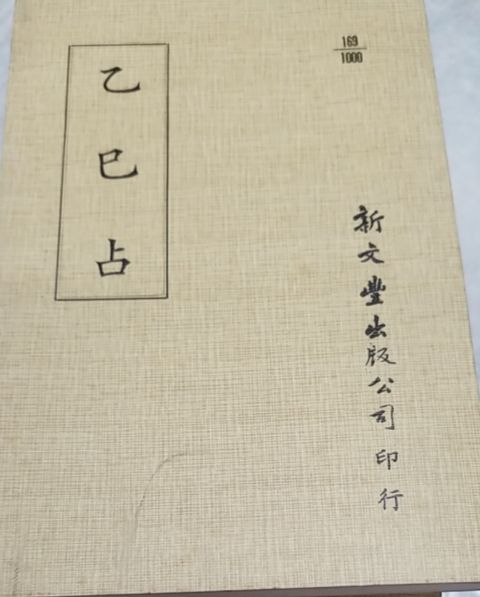 乙巳占
169
1000
新文豐出版公司印行